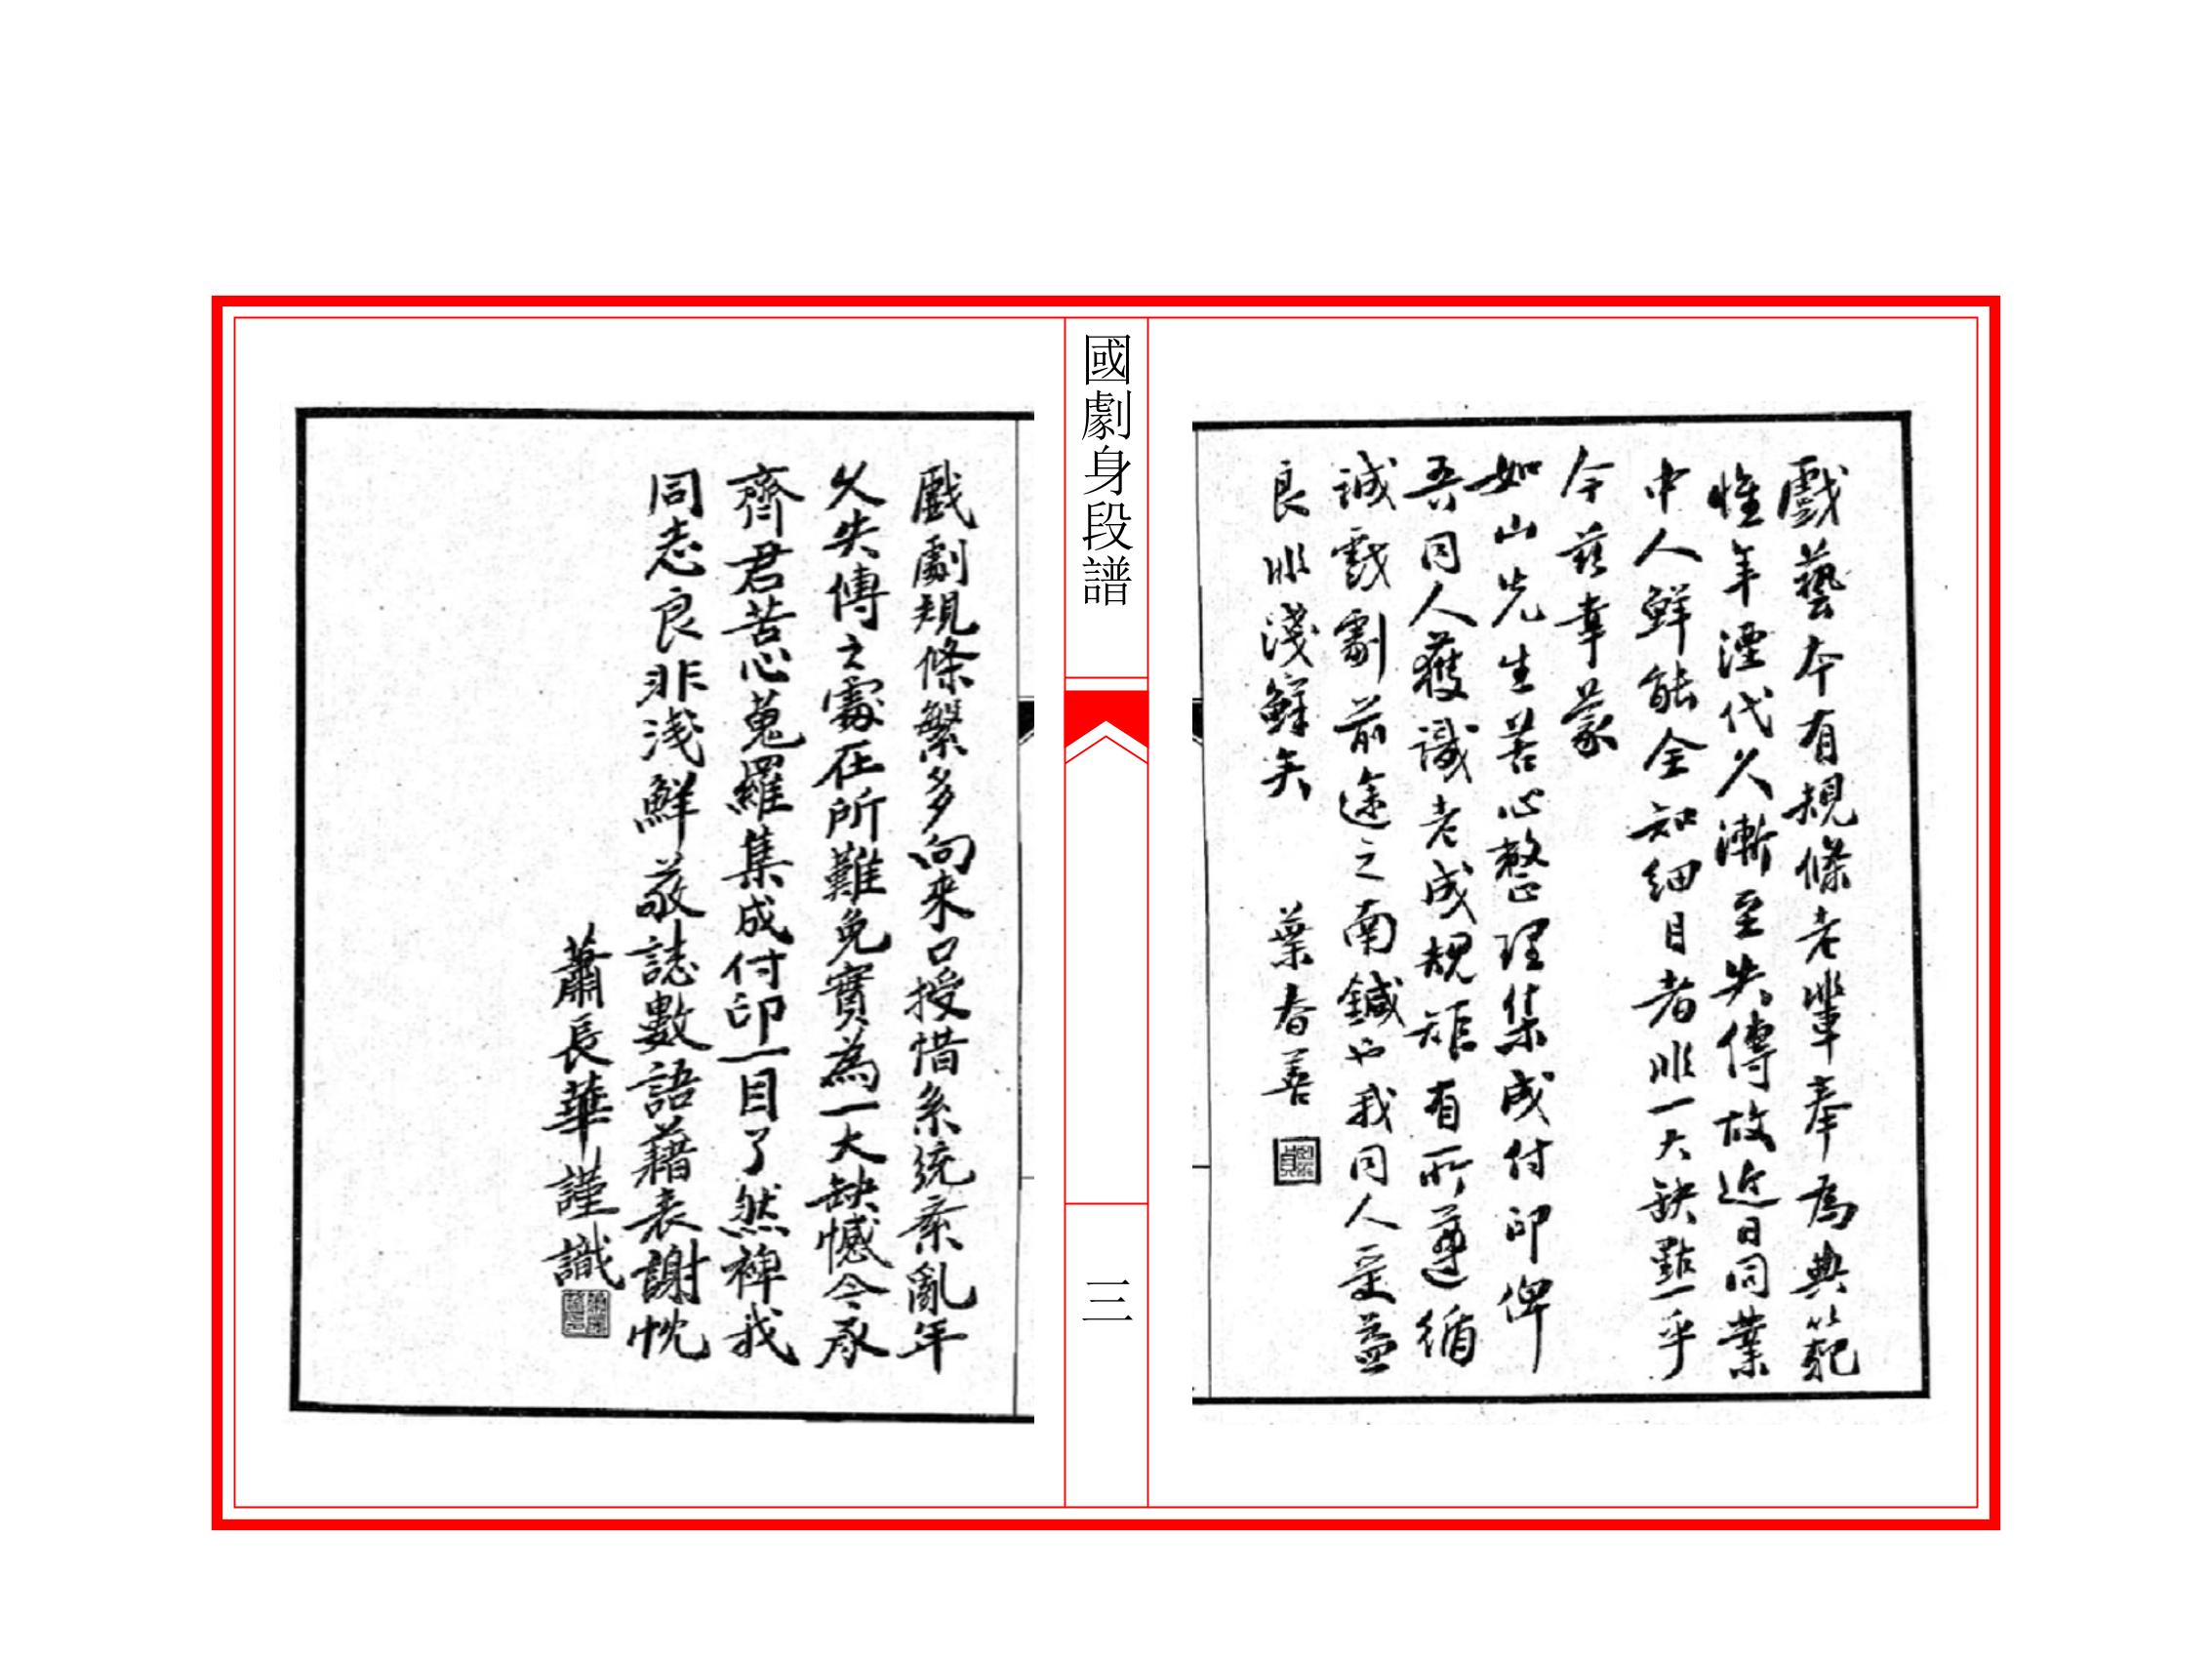 戲藝本有規條老輩奉為典範
惟年湮代久漸至失傳故近日同業
中人鮮能全知細目者非一大缺點乎
今茲幸蒙
如山先生苦心整理集成付印俾
吾同人獲識老成規矩有所遵循
誠戲劇前途之南鍼也我同人受益
良非淺鮮矣 葉春善
國劇身段譜
三
戲劇規條繁多向来口授惜系統紊亂年
久失傳之處在所難免實為一大缺憾今承
齊君苦心蒐羅集成付印一目了然裨我
同志良非淺鮮敬誌數語藉表謝忱
蕭長華謹識